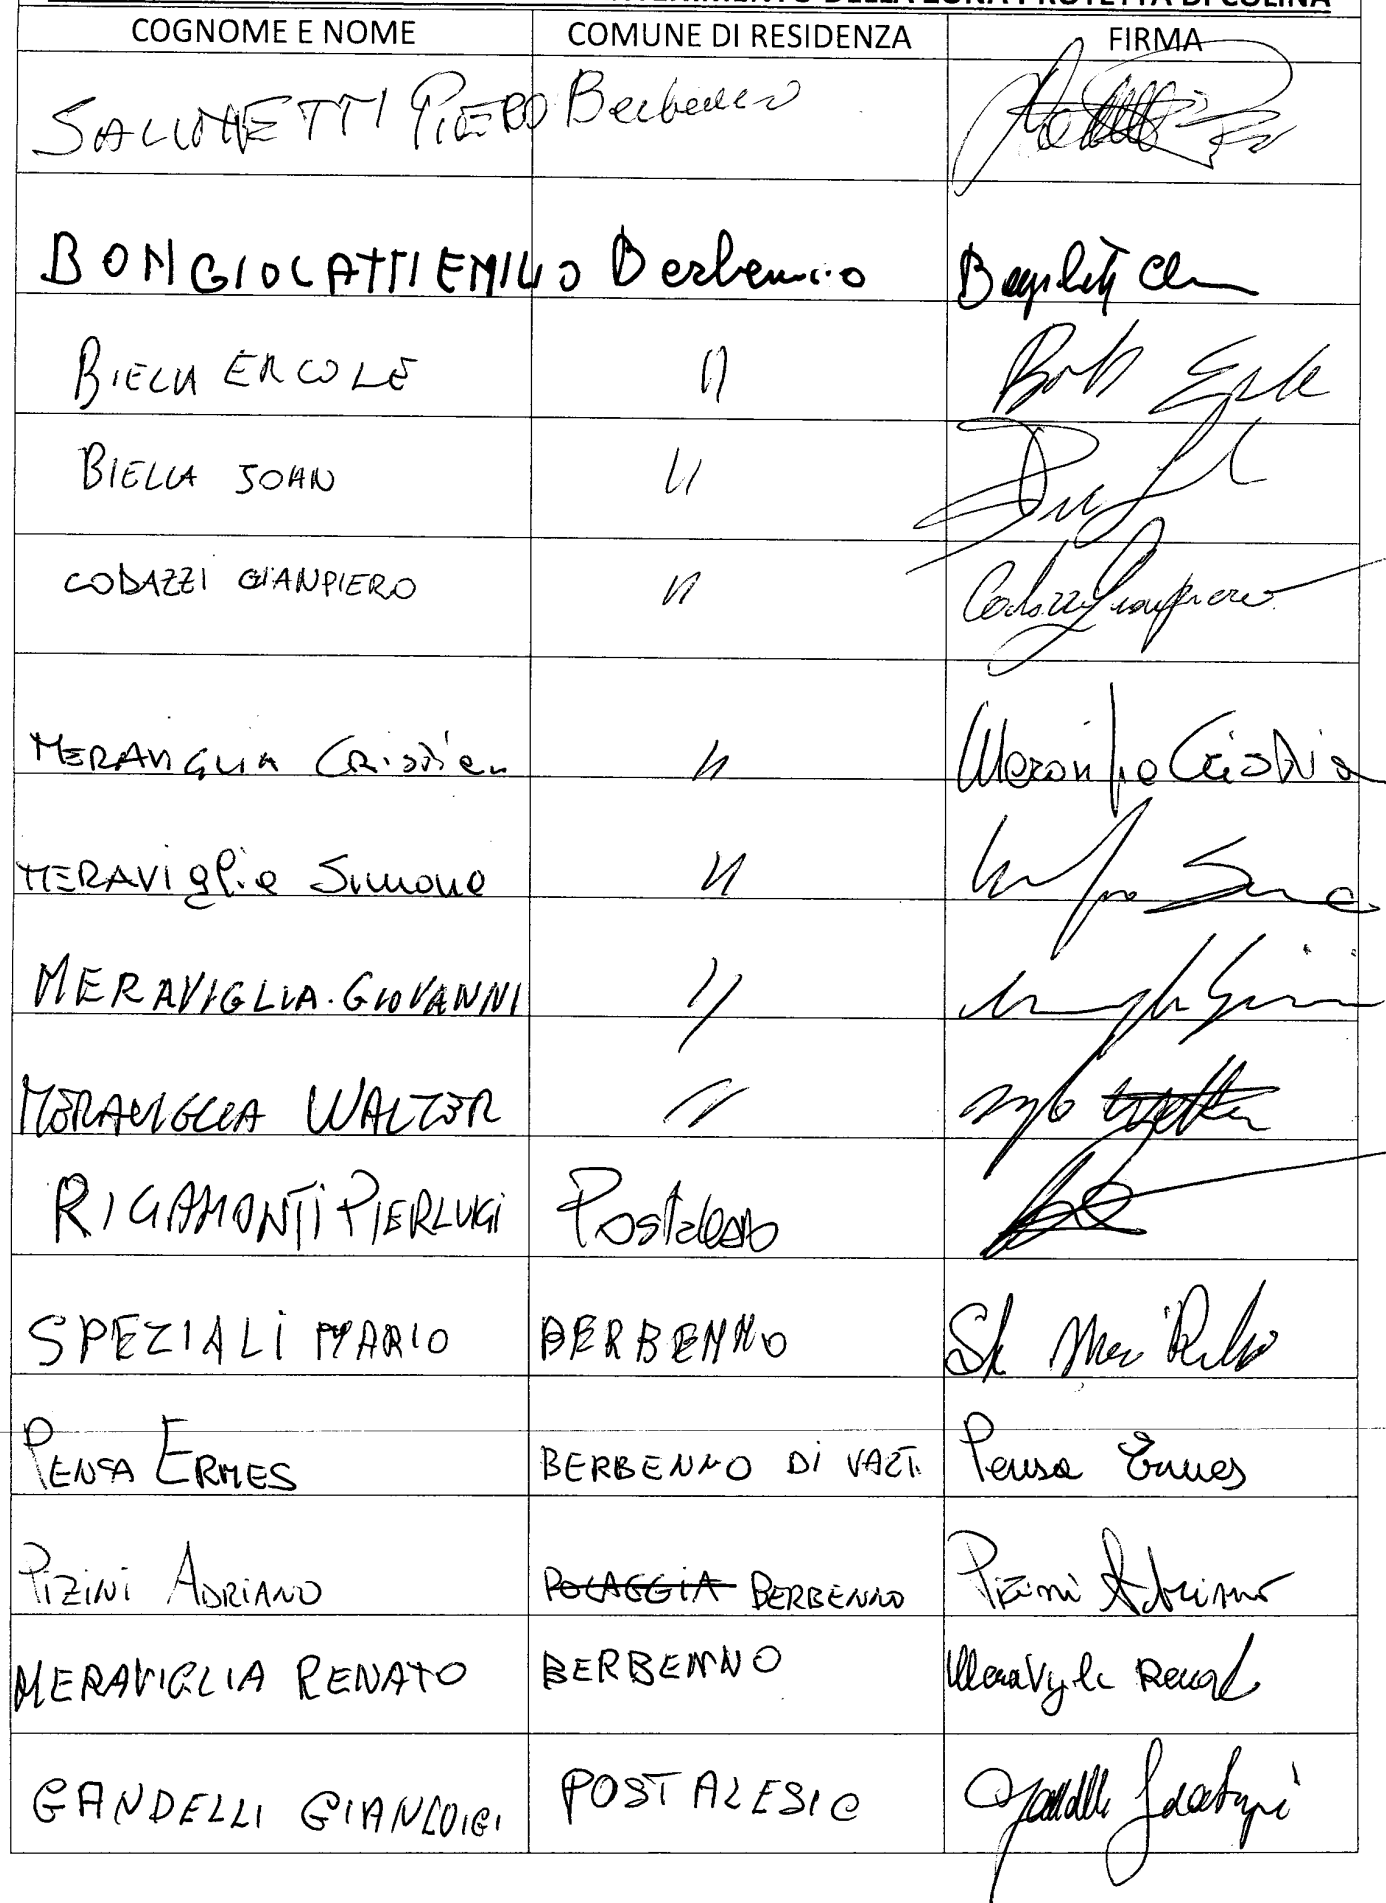 DELLA ZONA PROTETTA DI COLINA
COGNOME E NOME COMUNE DI RESIDENZA FIRMA
SALINETTI PIERO Berbenno
BONGIOLATTI EMILIO Berbenno
BIELLA ERCOLE "
BIELLA JOHN "
CODAZZI GIANPIERO " Codazzi Gianpiero
MERAVIGLIA Cristian " Meraviglia Cristian
MERAVIGlia Simone "
MERAVIGLIA GIOVANNI "
MERAVIGLIA WALTER "
RIGAMONTI PIERLUIGI Postalesio
SPEZIALI MARIO BERBENNO
PENSA ERMES BERBENNO DI VALT. Pensa Ermes
PIZINI ADRIANO POLAGGIA BERBENNO Pizini Adriano
MERAVIGLIA RENATO BERBENNO Meraviglia Renato
GANDELLI GIANLUIGI POSTALESIO Gandelli Gianluigi